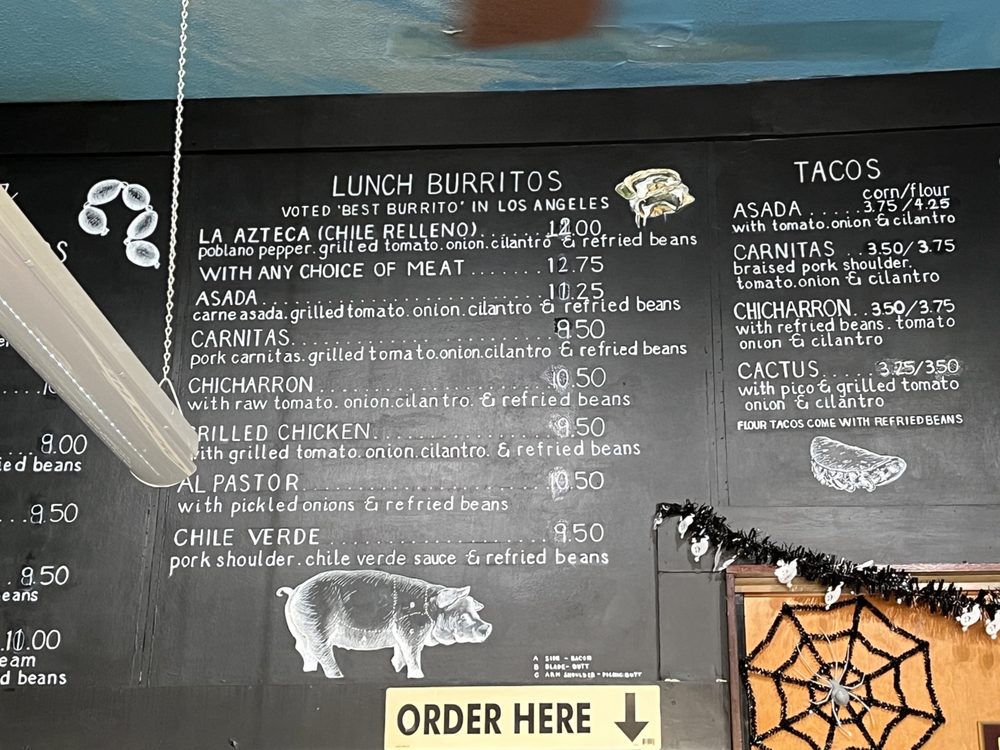 8.00
ied beans
8.50
8.50
eans
eam
d beans
LUNCH BURRITOS
VOTED 'BEST BURRITO' IN LOS ANGELES
LA AZTECA (CHILE RELLENO)
poblano pepper.grilled tomato.onion.cilantro & refried beans
WITH ANY CHOICE OF MEAT.......12.75
ASADA
carne asada.grilled tomato.onion.cilantro & refried beans
CARNITAS
pork carnitas.grilled tomato.onion.cilantro & refried beans
CHICHARRON 10.50
with raw tomato.onion.cilantro. & refried beans
GRILLED CHICKEN 9.50
with grilled tomato.onion.cilantro. & refried beans
AL PASTOR 10.50
with pickled onions & refried beans
CHILE VERDE 9.50
pork shoulder.chile verde sauce & refried beans
A SIDE - BACON
B BLADE - BUTT
C ARM SHOULDER - PICNIC BUTT
ORDER HERE
TACOS
corn/flour
ASADA.....3.75/4.25
with tomato.onion & cilantro
CARNITAS 3.50/3.75
braised pork shoulder.
tomato.onion & cilantro
CHICHARRON..3.50/3.75
with refried beans.tomato
onion & cilantro
CACTUS......3.25/3.50
with pico & grilled tomato
onion & cilantro
FLOUR TACOS COME WITH REFRIED BEANS